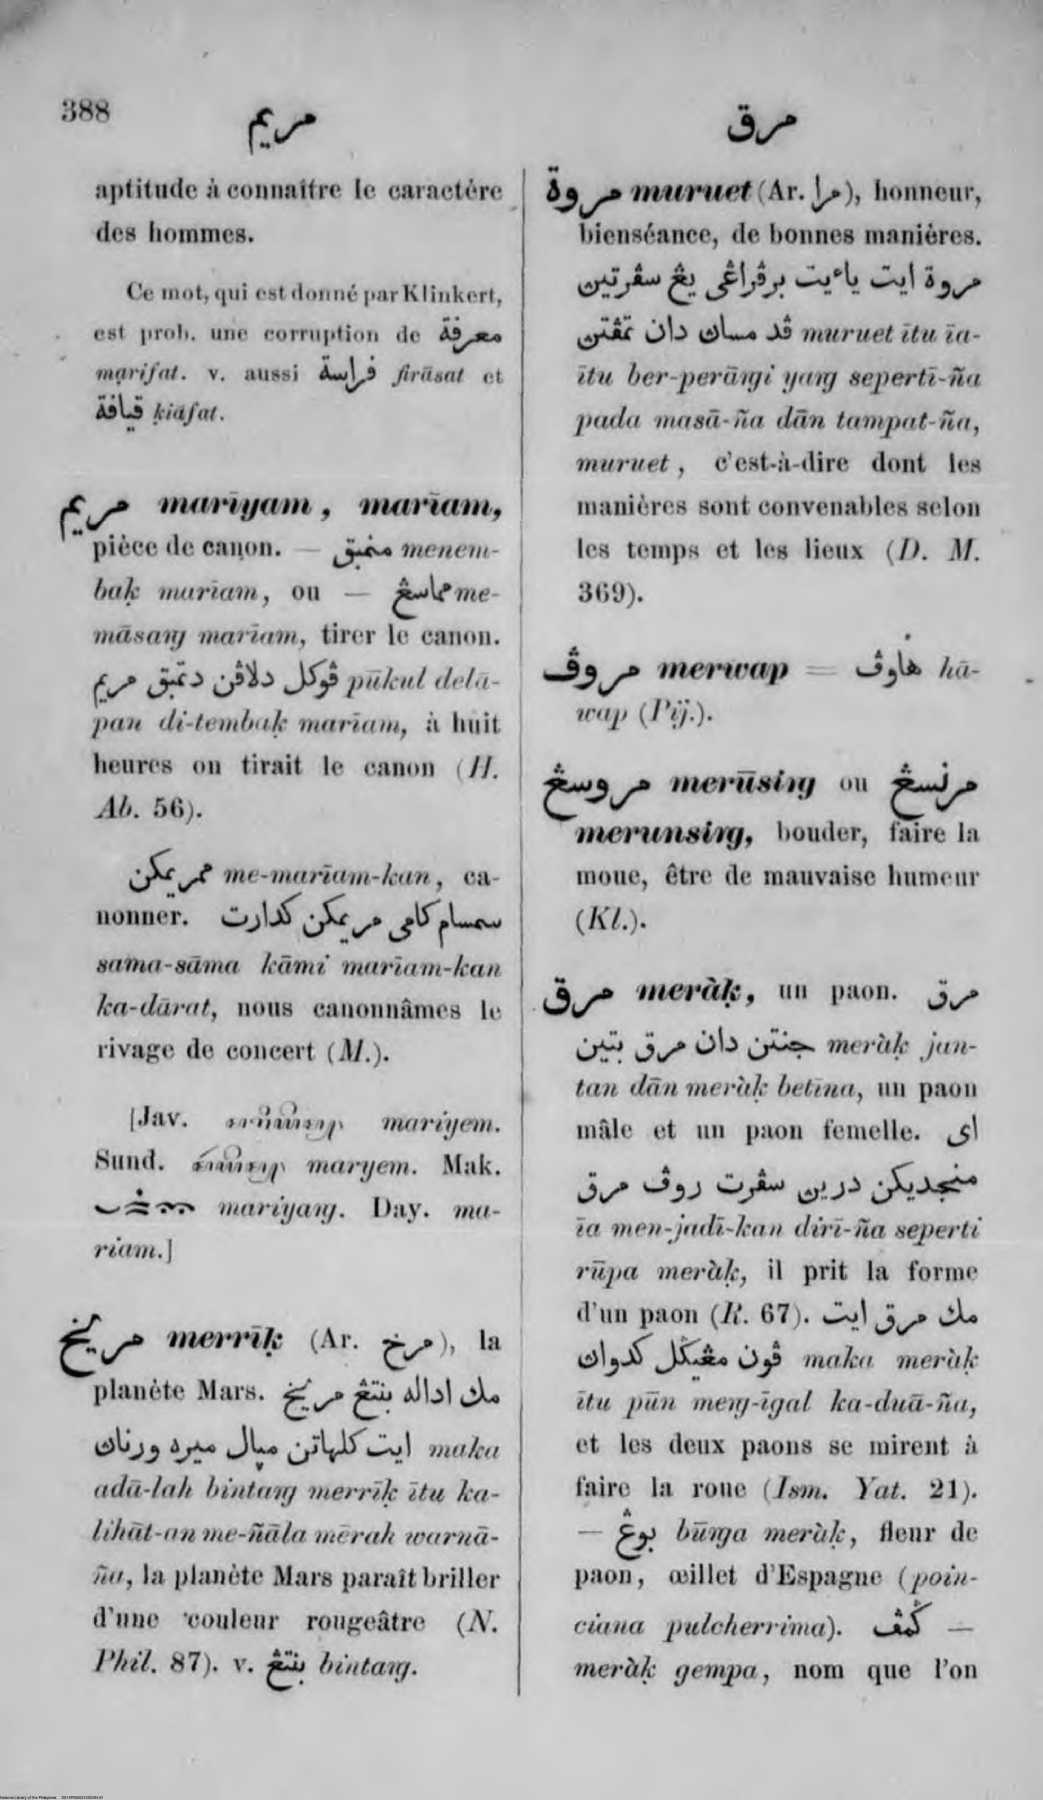 388
مريم
مرق
aptitude à connaître le caractère
des hommes.
Ce mot, qui est donné par Klinkert,
est prob. une corruption de معرفة
maʼrifat. v. aussi فراسة firāsat et
قيافة ḳiāfat.
مريم marīyam, marīam,
pièce de canon. — منمبق menem-
baḳ marīam, ou — مماسڠ me-
māsaŋ marīam, tirer le canon.
ڤوكل دلاڤن دتمبق مريم pūkul delā-
pan di-tembaḳ marīam, à huit
heures on tirait le canon (H.
Ab. 56).
ممريمكن me-marīam-kan, ca-
nonner. سمسام كامي مريمكن كدارت
sama-sāma kāmi marīam-kan
ka-dārat, nous canonnâmes le
rivage de concert (M.).
[Jav. mariyem.
Sund. maryem. Mak.
mariyaŋ. Day. ma-
riam.]
مريخ merrīḳ (Ar. مرخ), la
planète Mars. مك اداله بنتڠ مريخ
ايت كلهاتن ميال ميره ورنان maka
adā-lah bintaŋ merrīḳ ītu ka-
lihāt-an me-ñāla mērah warnā-
ña, la planète Mars paraît briller
d'une couleur rougeâtre (N.
Phil. 87). v. بنتڠ bintaŋ.
مروة muruet (Ar. مرا), honneur,
bienséance, de bonnes manières.
مروة ايت ياءيت برڤراڠي يڠ سڤرتين
ڤد مسان دان تمڤتن muruet ītu īa-
ītu ber-perāŋi yaŋ sepertī-ña
pada masā-ña dān tampat-ña,
muruet, c'est-à-dire dont les
manières sont convenables selon
les temps et les lieux (D. M.
369).
مروڤ merwap = هاوڤ hā-
wap (Pij.).
مروسڠ merūsiŋ ou مرنسڠ
merunsiŋ, bouder, faire la
moue, être de mauvaise humeur
(Kl.).
مرق meràḳ, un paon. مرق
جنتن دان مرق بتين meràḳ jan-
tan dān meràḳ betīna, un paon
mâle et un paon femelle. اى
منجديكن درين سڤرت روڤ مرق
īa men-jadī-kan dirī-ña seperti
rūpa meràḳ, il prit la forme
d'un paon (R. 67). مك مرق ايت
ڤون مڠيݢل كدوان maka meràḳ
ītu pūn meŋ-īgal ka-duā-ña,
et les deux paons se mirent à
faire la roue (Ism. Yat. 21).
— بوڠ būŋa meràḳ, fleur de
paon, œillet d'Espagne (poin-
ciana pulcherrima). — ݢمڤ
meràḳ gempa, nom que l'on